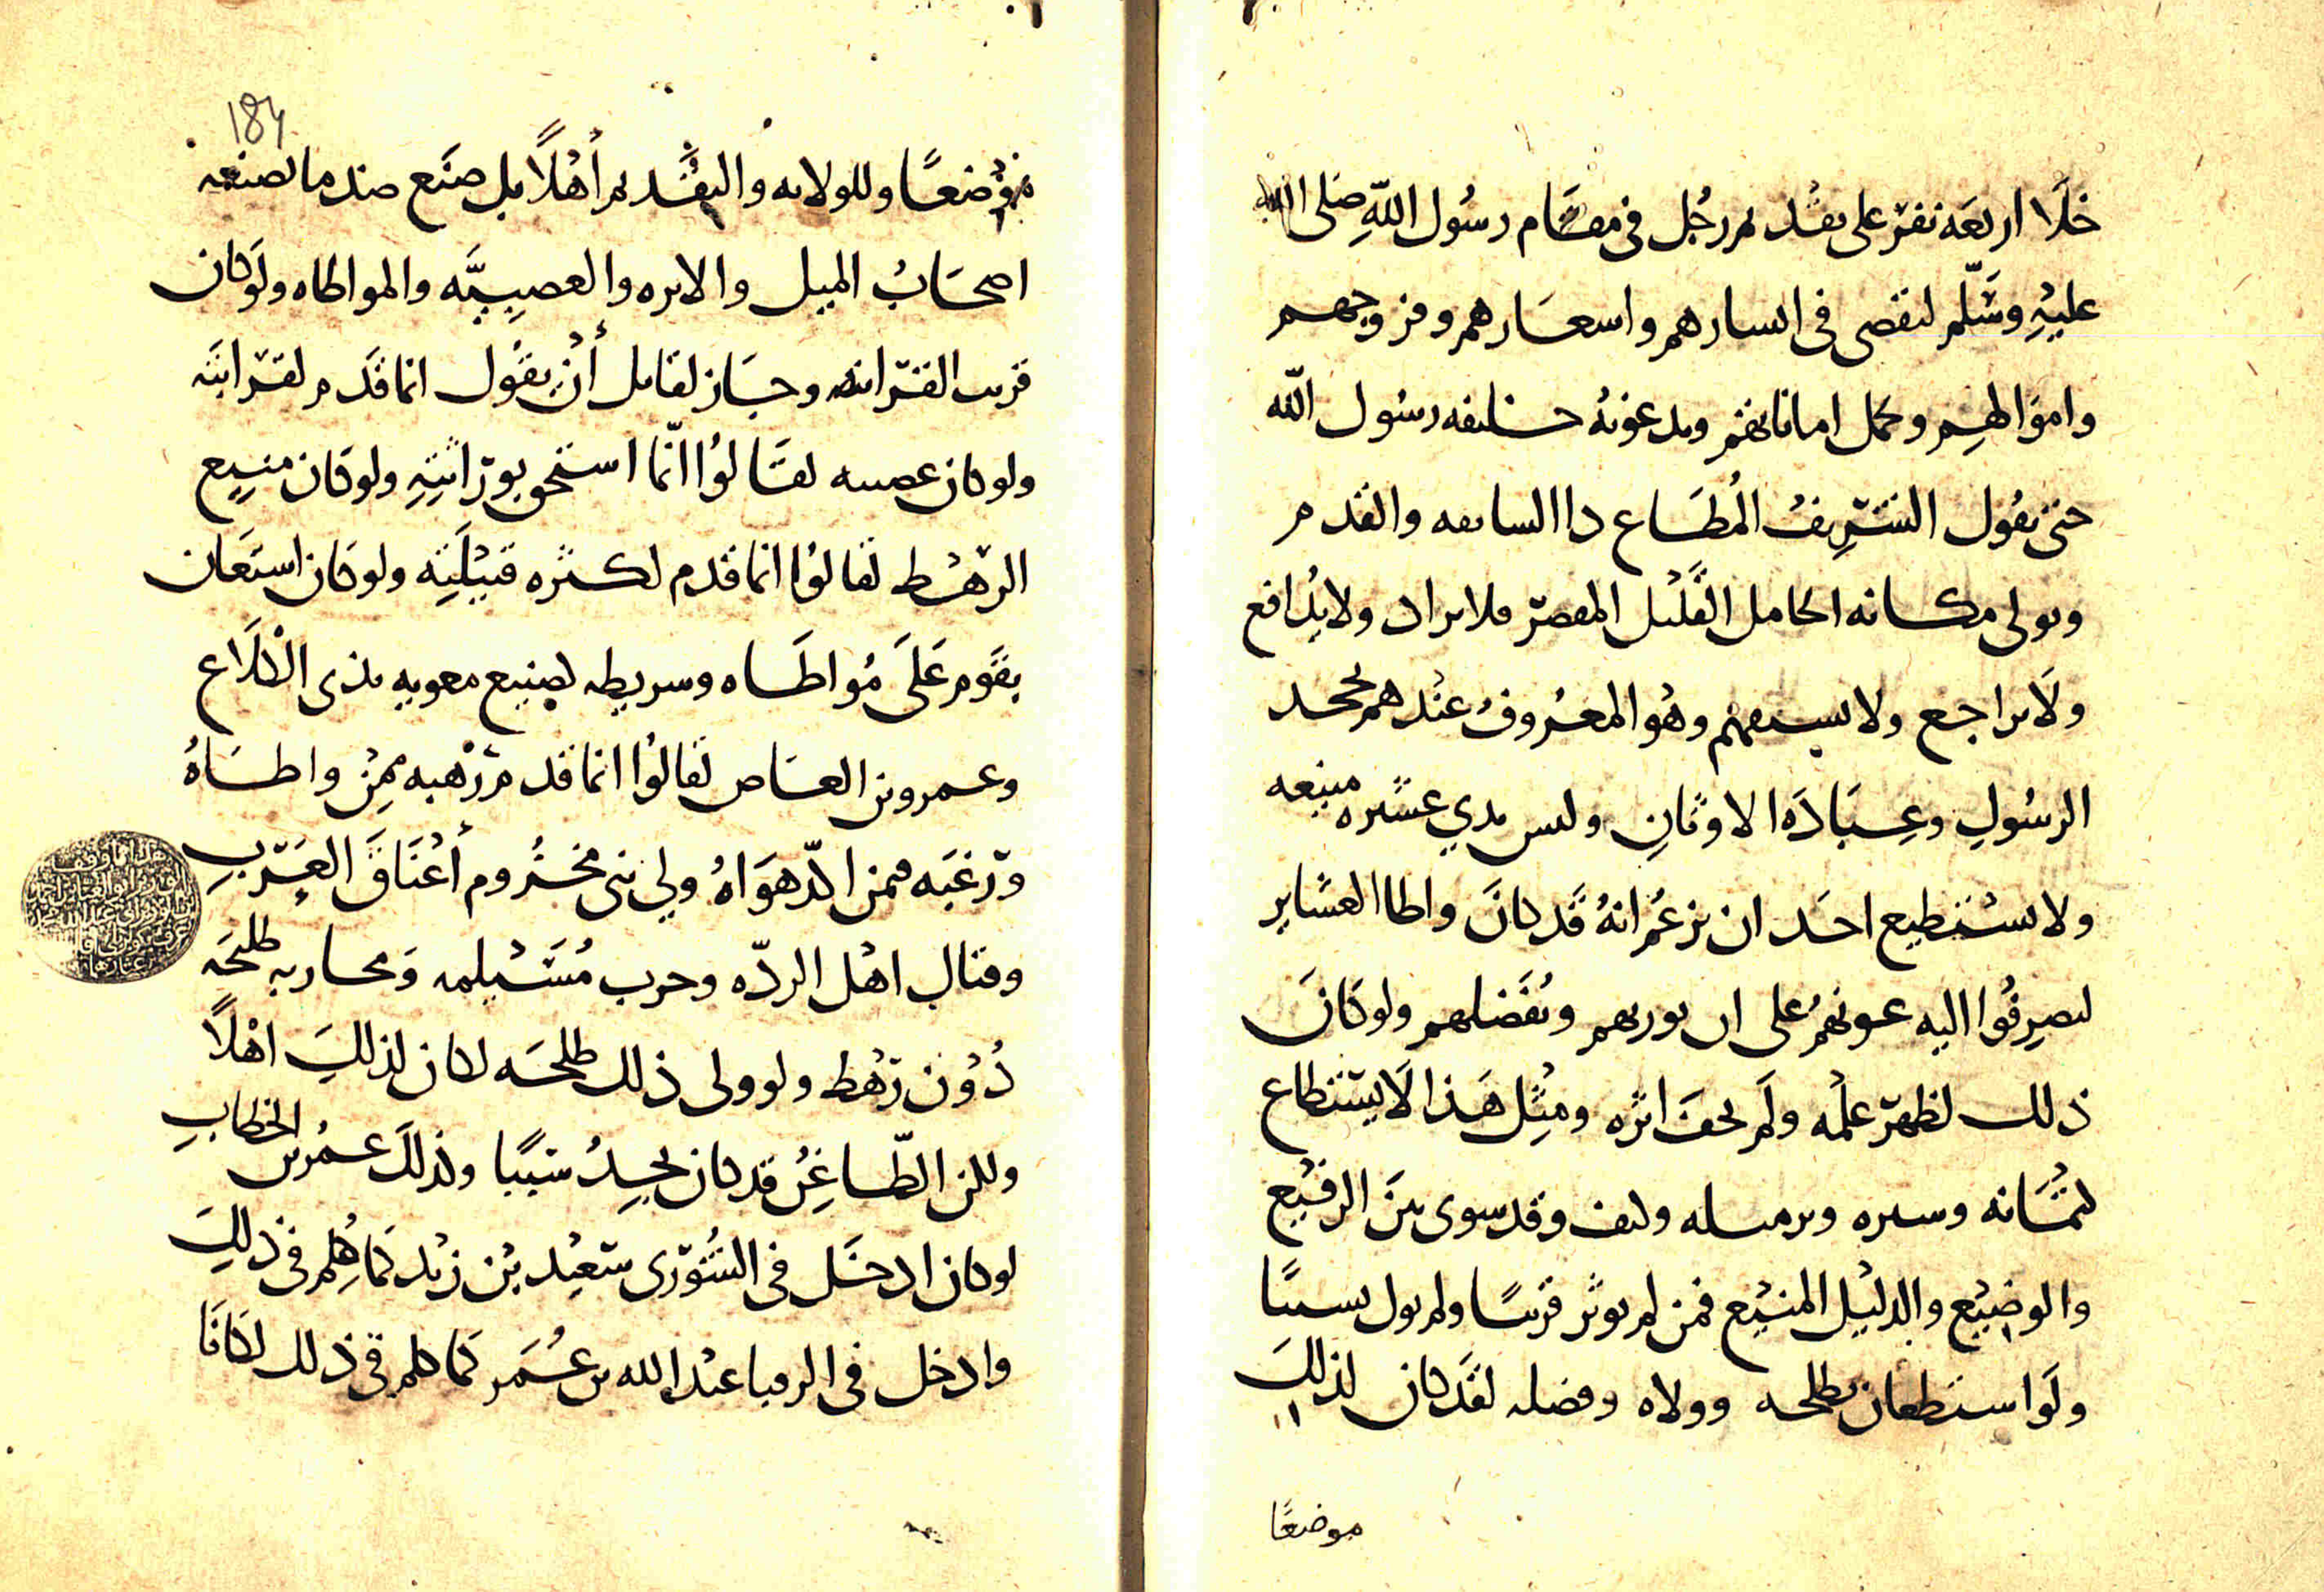 خلا اربعه نفر على تقديم رجل في مقام رسول الله صلى الله
عليه وسلم لىقضى في ابسارهم واسعارهم وفروجهم
واموالهم وتحمل اماناتهم ويدعونه خليفه رسول الله
حتى يقول الشريف المطاع ذا السابقه والقدم
ويولى مكانه الخامل القليل المقصر فلا يراد ولا يدافع
ولا يراجع ولا وهو المعروف عندهم بجحد
الرسول وعبادة الاوثان وليس بذي عشيره منيعه
ولا يستطيع احد ان يزعم انه قد كان واطا العشاير
ليصرفوا اليه عونهم على ان يورىهم وىفضلهم ولو كان
ذلك لظهر علمه ولم يخف اثره ومثل هذا لا يستطاع
كتمانه وستره وكيف وقد سوى بين الرفيع
والوضيع والذليل المنيع فمن لم يوثر قريبا ولم يول نسيبا
ولو استعان بطلحه وولاه وفضله لقد كان لذلك
موضعا
184
موضعا وللولايه والتقديم أهلا بل صنع ضد ما يصنعه
اصحاب الميل والاثره والعصبيه والمواطاه ولو كان
قريب القرابه وجاز لقايل أن يقول انما قدم لقرابته
ولو كان عصبه لقالوا انما استحق بوراثته ولو كان منيع
الرهط لقالوا انما قدم لكثره قبيلته ولو كان استعان
بقوم على مواطاه وشريطه لصنيع معويه بذى الكلاع
وعمرو بن العاص لقالوا انما قدم رهبه ممن واطاه
ورغبه فمن اكد هواه ولي بني مخزوم أعناق العرب
وقتال اهل الرده وحرب مسيلمه ومحاربه طلحه
دون رهط ولو ولى ذلك طلحه لكان لذلك اهلا
ولكن الطاعن قد كان يجد سببا وكذلك عمر بن الخطاب
لو كان ادخل في الشورى سعيد بن زيد كما كلم في ذلك
وادخل في الرميا عبد الله بن عمر كما كلم في ذلك لكانا